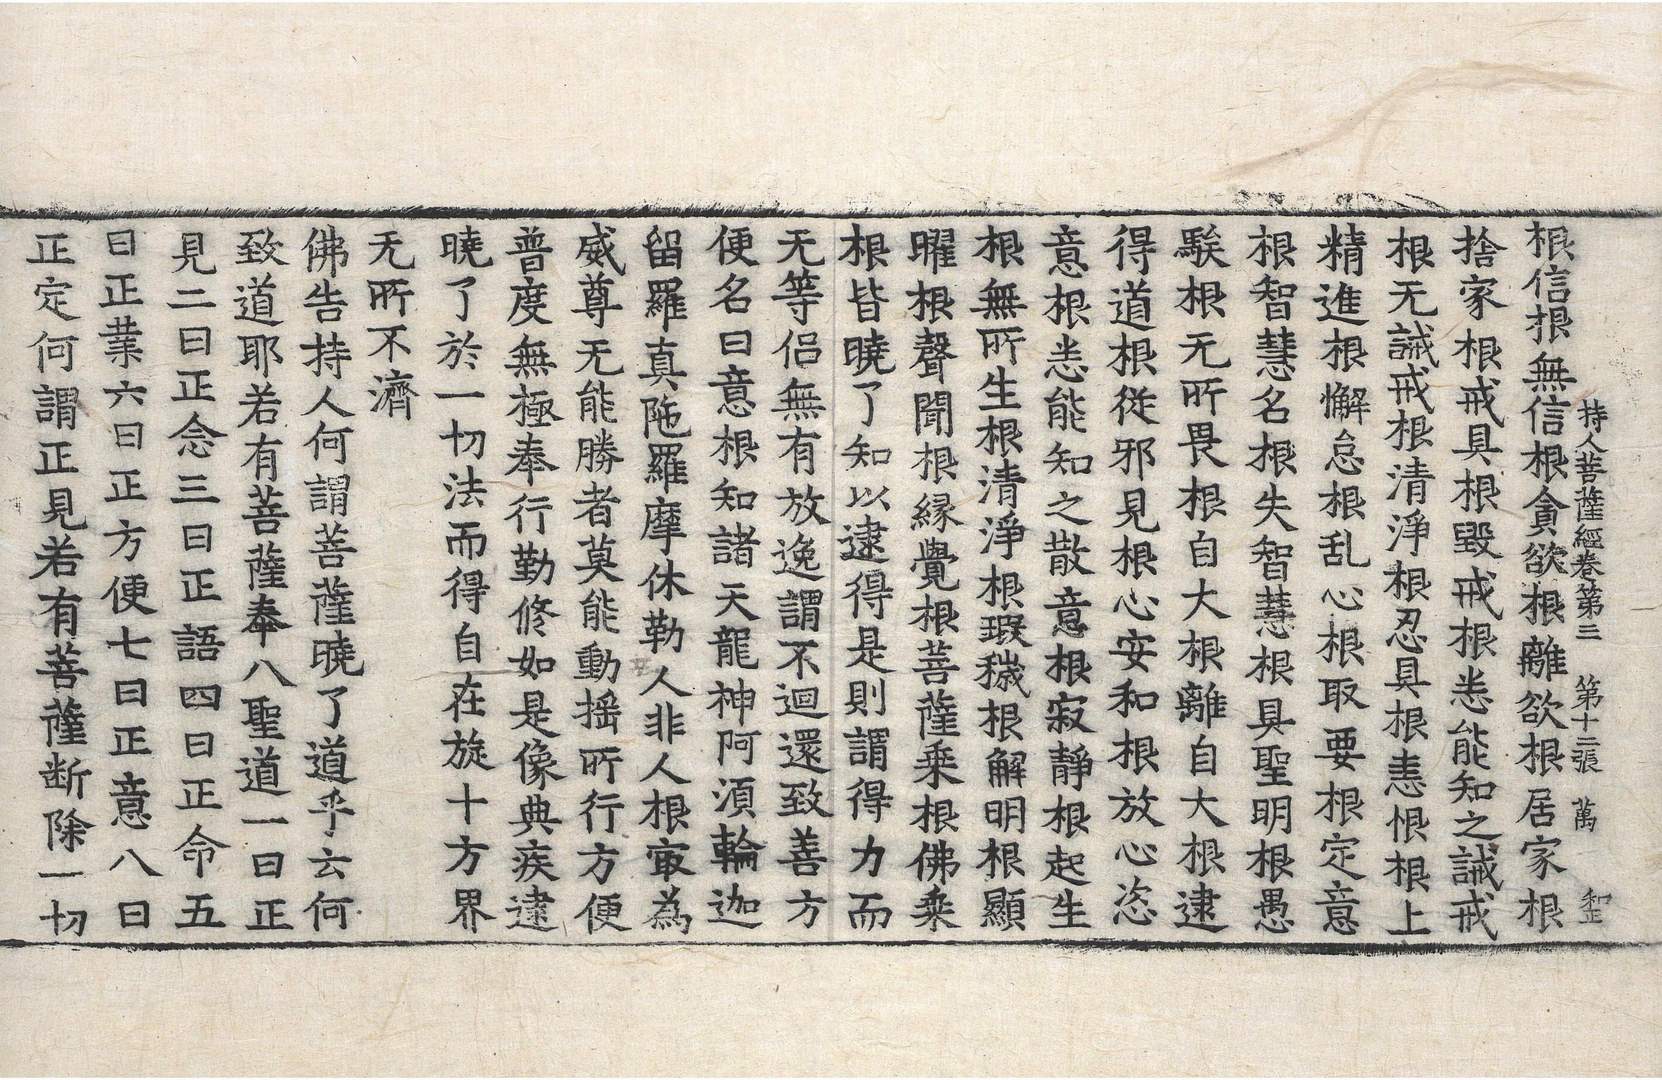 持人菩薩經卷第三 第十二張 萬
根信根無信根貪欲根離欲根居家根
捨家根戒具根毀戒根悉能知之誡戒
根无誡戒根清淨根忍具根恚恨根上
精進根懈怠根乱心根取要根定意
根智慧名根失智慧根具聖明根愚
騃根无所畏根自大根離自大根逮
得道根從邪見根心安和根放心恣
意根悉能知之散意根寂靜根起生
根無所生根清淨根瑕穢根解明根顯
曜根聲聞根緣覺根菩薩乘根佛乘
根皆曉了知以逮得是則謂得力而
无等侶無有放逸謂不迴還致善方
便名曰意根知諸天龍神阿湏輪迦
留羅真陁羅摩休勒人非人根㝡為
威尊无能勝者莫能動搖所行方便
普度無極奉行勤修如是像典疾逮
曉了於一切法而得自在旋十方界
无所不濟
佛告持人何謂菩薩曉了道乎云何
致道耶若有菩薩奉八聖道一曰正
見二曰正念三曰正語四曰正命五
曰正業六曰正方便七曰正意八曰
正定何謂正見若有菩薩断除一切